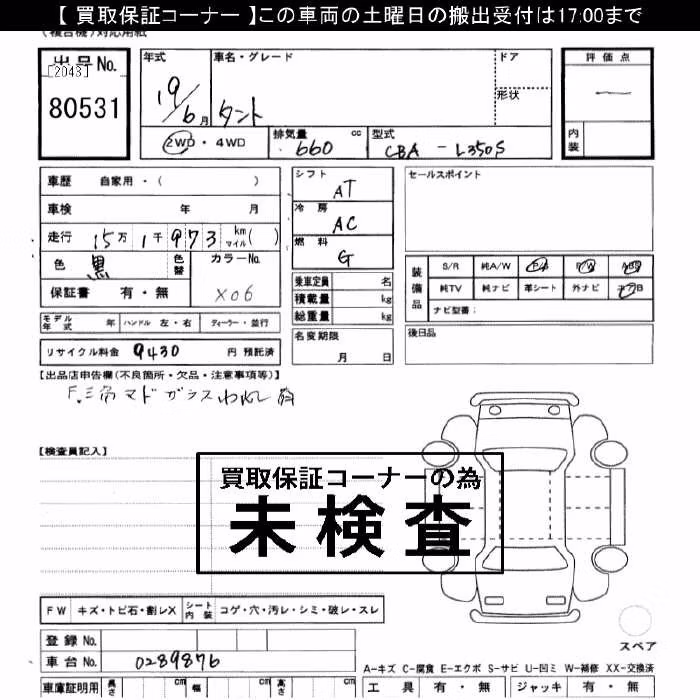 【 買取保証コーナー 】この車両の土曜日の搬出受付は17:00まで
(複合機)対応用紙
出品No.
[2043]
80531
年式
19/6月
車名・グレード
タント
ドア
形状
評価点
内装
2WD・4WD
排気量 660 cc
型式 CBA-L350S
車歴 自家用・( )
車検 年 月
走行 15万1千973 km マイル( )
色 黒 色替
カラーNo. X06
保証書 有・無
シフト AT
冷房 AC
燃料 G
乗車定員 名
積載量 kg
総重量 kg
名変期限
月 日
セールスポイント
装備品
S/R 純A/W P/S P/W ABS
純TV 純ナビ 革シート 外ナビ エアB
ナビ型番:
後日品
モデル年式 年 ハンドル 左・右 ディーラー・並行
リサイクル料金 9430 円 預託済
【出品店申告欄(不良箇所・欠品・注意事項等)】
F.三角マドガラスわれし
【検査員記入】
買取保証コーナーの為
未検査
FW キズ・トビ石・割レX シート内装 コゲ・穴・汚レ・シミ・破レ・スレ
登録No.
車台No. 0289876
車庫証明用 長さ cm 幅 cm 高さ cm
スペア
A-キズ C-腐食 E-エクボ S-サビ U-凹ミ W-補修 XX-交換済
工具 有・無 ジャッキ 有・無